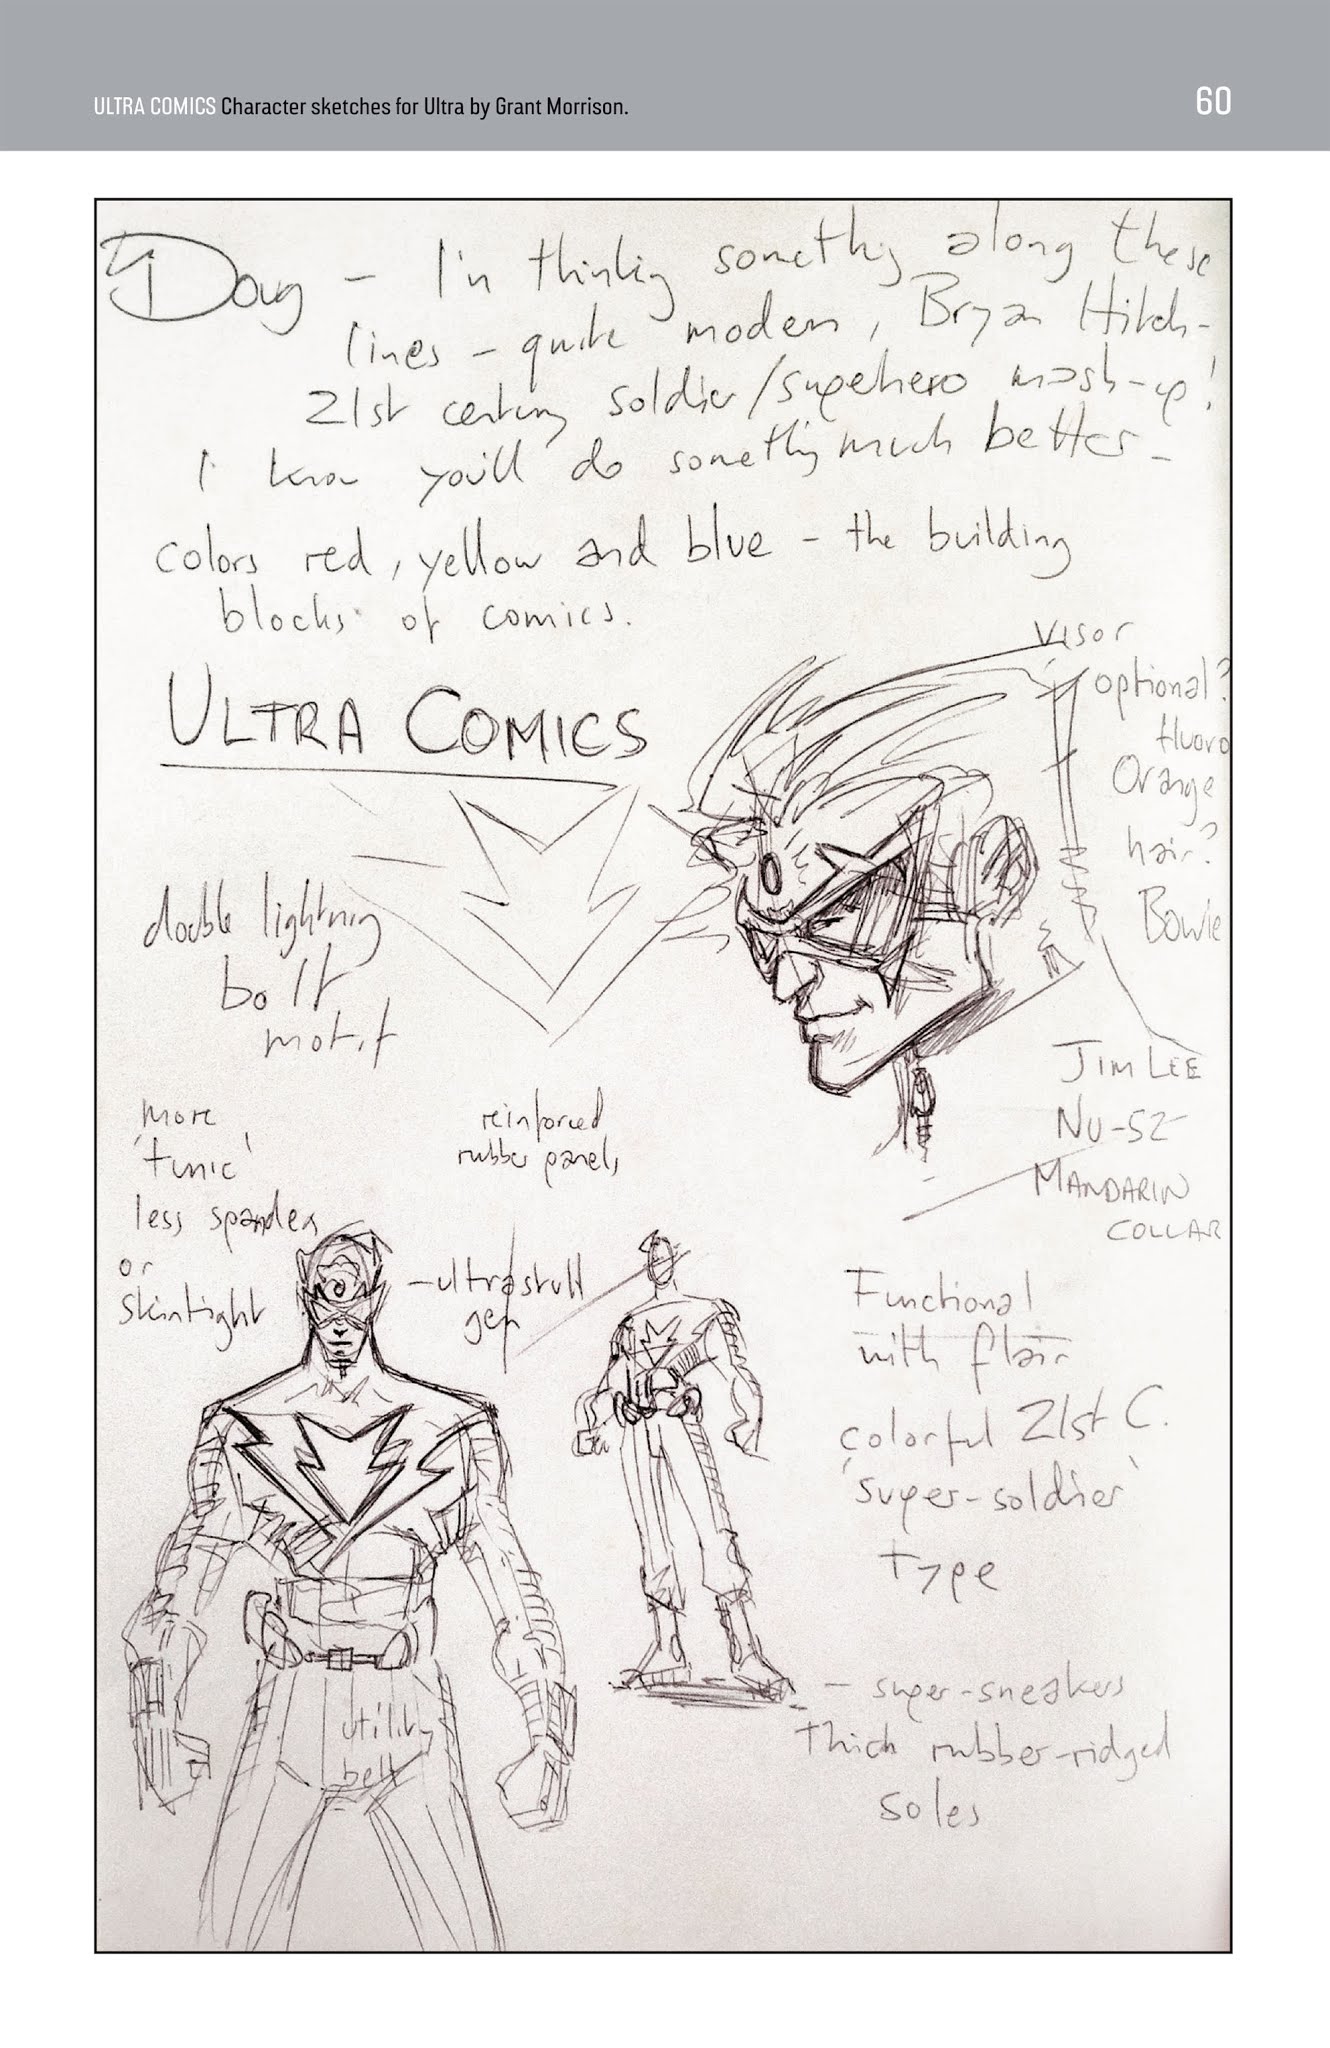 ULTRA COMICS Character sketches for Ultra by Grant Morrison.
60
Doug – I'm thinking something along these
lines – quite modern, Bryan Hitch-
21st century soldier/superhero mash-up!
I know you'll do something much better –
colors red, yellow and blue – the building
blocks of comics.
ULTRA COMICS
visor
optional?
fluoro
Orange
hair?
Bowie
double lightning
bolt
motif
JIM LEE
NU-52
MANDARIN
COLLAR
more
'tunic'
less spandex
or
skintight
reinforced
rubber panels
– ultrastuff
gem
Functional
with flair
colorful 21st C.
'super-soldier'
type
utility
belt
– super-sneakers
thick rubber-ridged
soles